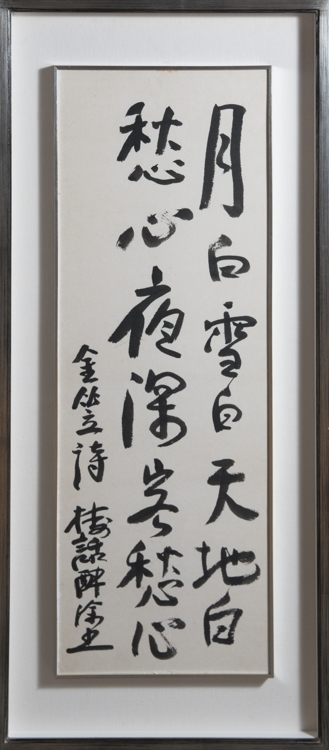 月白雪白天地白
愁心夜深客愁心
金笠詩 醉